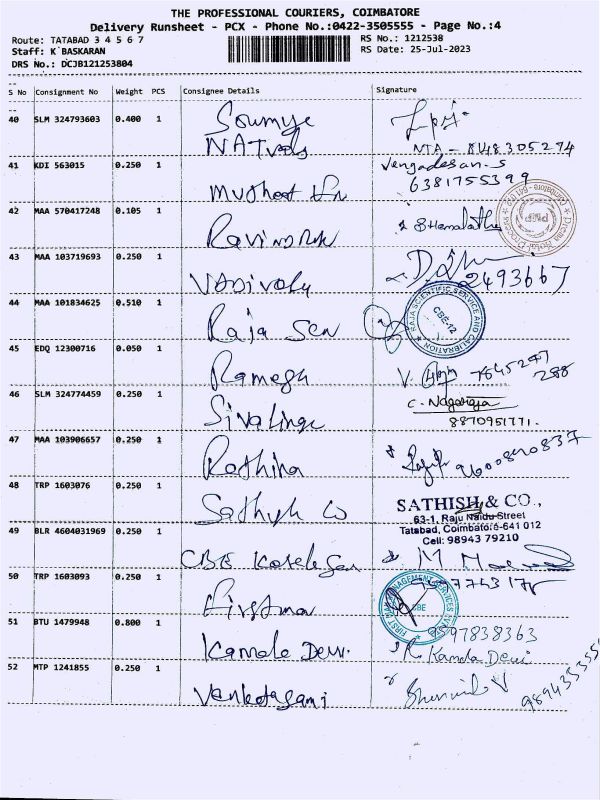 THE PROFESSIONAL COURIERS, COIMBATORE
Delivery Runsheet - PCX - Phone No.:0422-3505555 - Page No.:4
Route: TATABAD 3 4 5 6 7 RS No.: 1212538
Staff: K BASKARAN RS Date: 25-Jul-2023
DRS No.: DCJB121253804
S No Consignment No Weight PCS Consignee Details Signature
40 SLM 324793603 0.400 1 Soumye
NATvals MTA - 8148305274
41 KDI 563015 0.250 1 Vengadesan.S
Muthoot Fin 6381755399
42 MAA 570417248 0.105 1 Hemalatha
PMP
43 MAA 103719693 0.250 1
Vadivelu 2493667
44 MAA 101834625 0.510 1 RAJA SCIENTIFIC SERVICE AND CALIBRATION
Raja Scn CBE-12
45 EDQ 12300716 0.050 1
Ramesh V. 7845297
288
46 SLM 324774459 0.250 1 C. Nagaraja
Sivalinge 8870951771.
47 MAA 103906657 0.250 1
Rathina 9600840837
48 TRP 1603076 0.250 1
Sathyh Co SATHISH & CO.,
63-1, Raju Naidu Street
Tatabad, Coimbatore-641 012
Cell: 98943 79210
49 BLR 4604031969 0.250 1
CBE M
50 TRP 1603093 0.250 1
FIRST MAN MANAGEMENT SERVICES
CBE
51 BTU 1479948 0.800 1 9597838363
Kamala Devi Kamala Devi
52 MTP 1241855 0.250 1
Venkatasami V 989435355